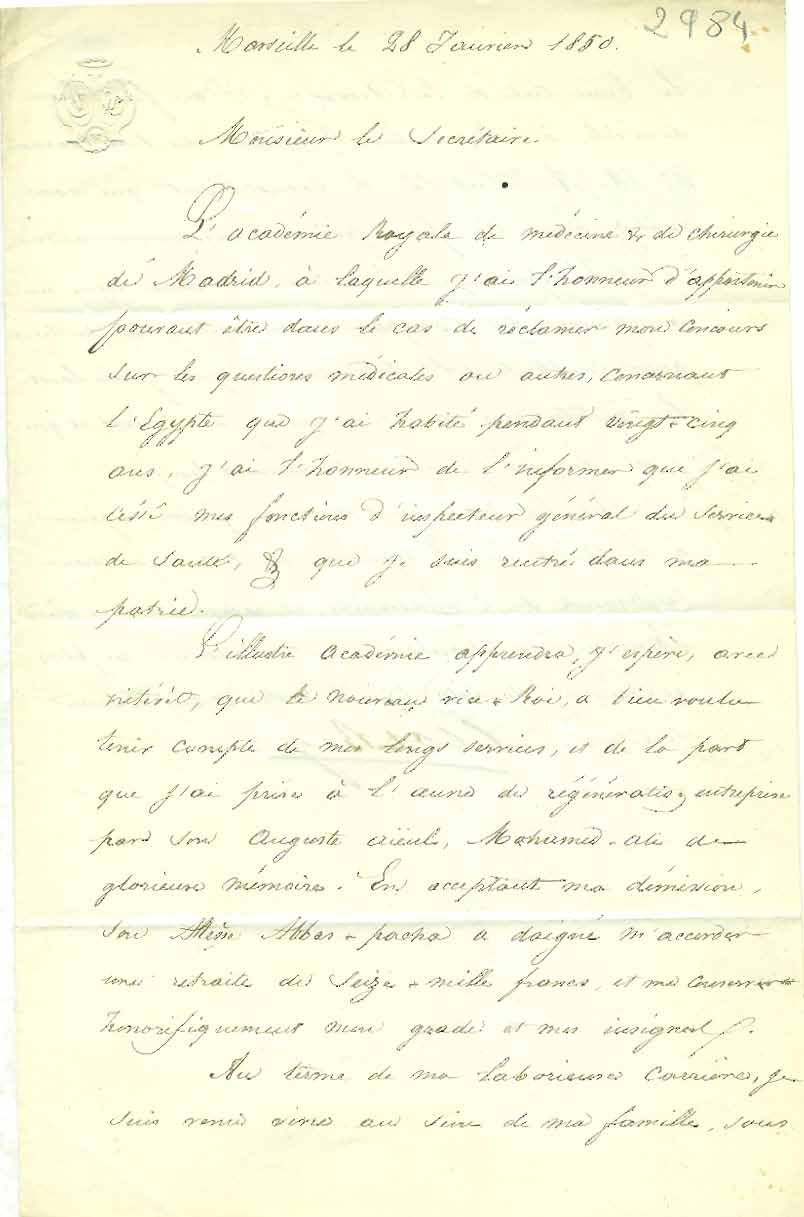 2984
Marseille le 28 Janvier 1850.
Monsieur le Secrétaire
L'académie Royale de médecine & de chirurgie
de Madrid, à laquelle j'ai l'honneur d'appartenir
pouvant être dans le cas de réclamer mon concours
sur les questions médicales ou autres, concernant
l'Egypte que j'ai habité pendant vingt-cinq
ans, j'ai l'honneur de l'informer que j'ai
cessé mes fonctions d'inspecteur général du service
de santé, & que je suis rentré dans ma
patrie.
L'illustre académie apprendra, j'espère, avec
intérêt, que le nouveau vice-Roi, a bien voulu
tenir compte de mes longs services, et de la part
que j'ai prise à l'œuvre de régénération entreprise
par son auguste aïeul, Mohamed-ali de
glorieuse mémoire. En acceptant ma démission,
son Altesse Abbas-pacha a daigné m'accorder
une retraite de Seize-mille francs, et me conserver
honorifiquement mon grade et mes insignes.
Au terme de ma laborieuse carrière, je
suis venu vivre au sein de ma famille, sous